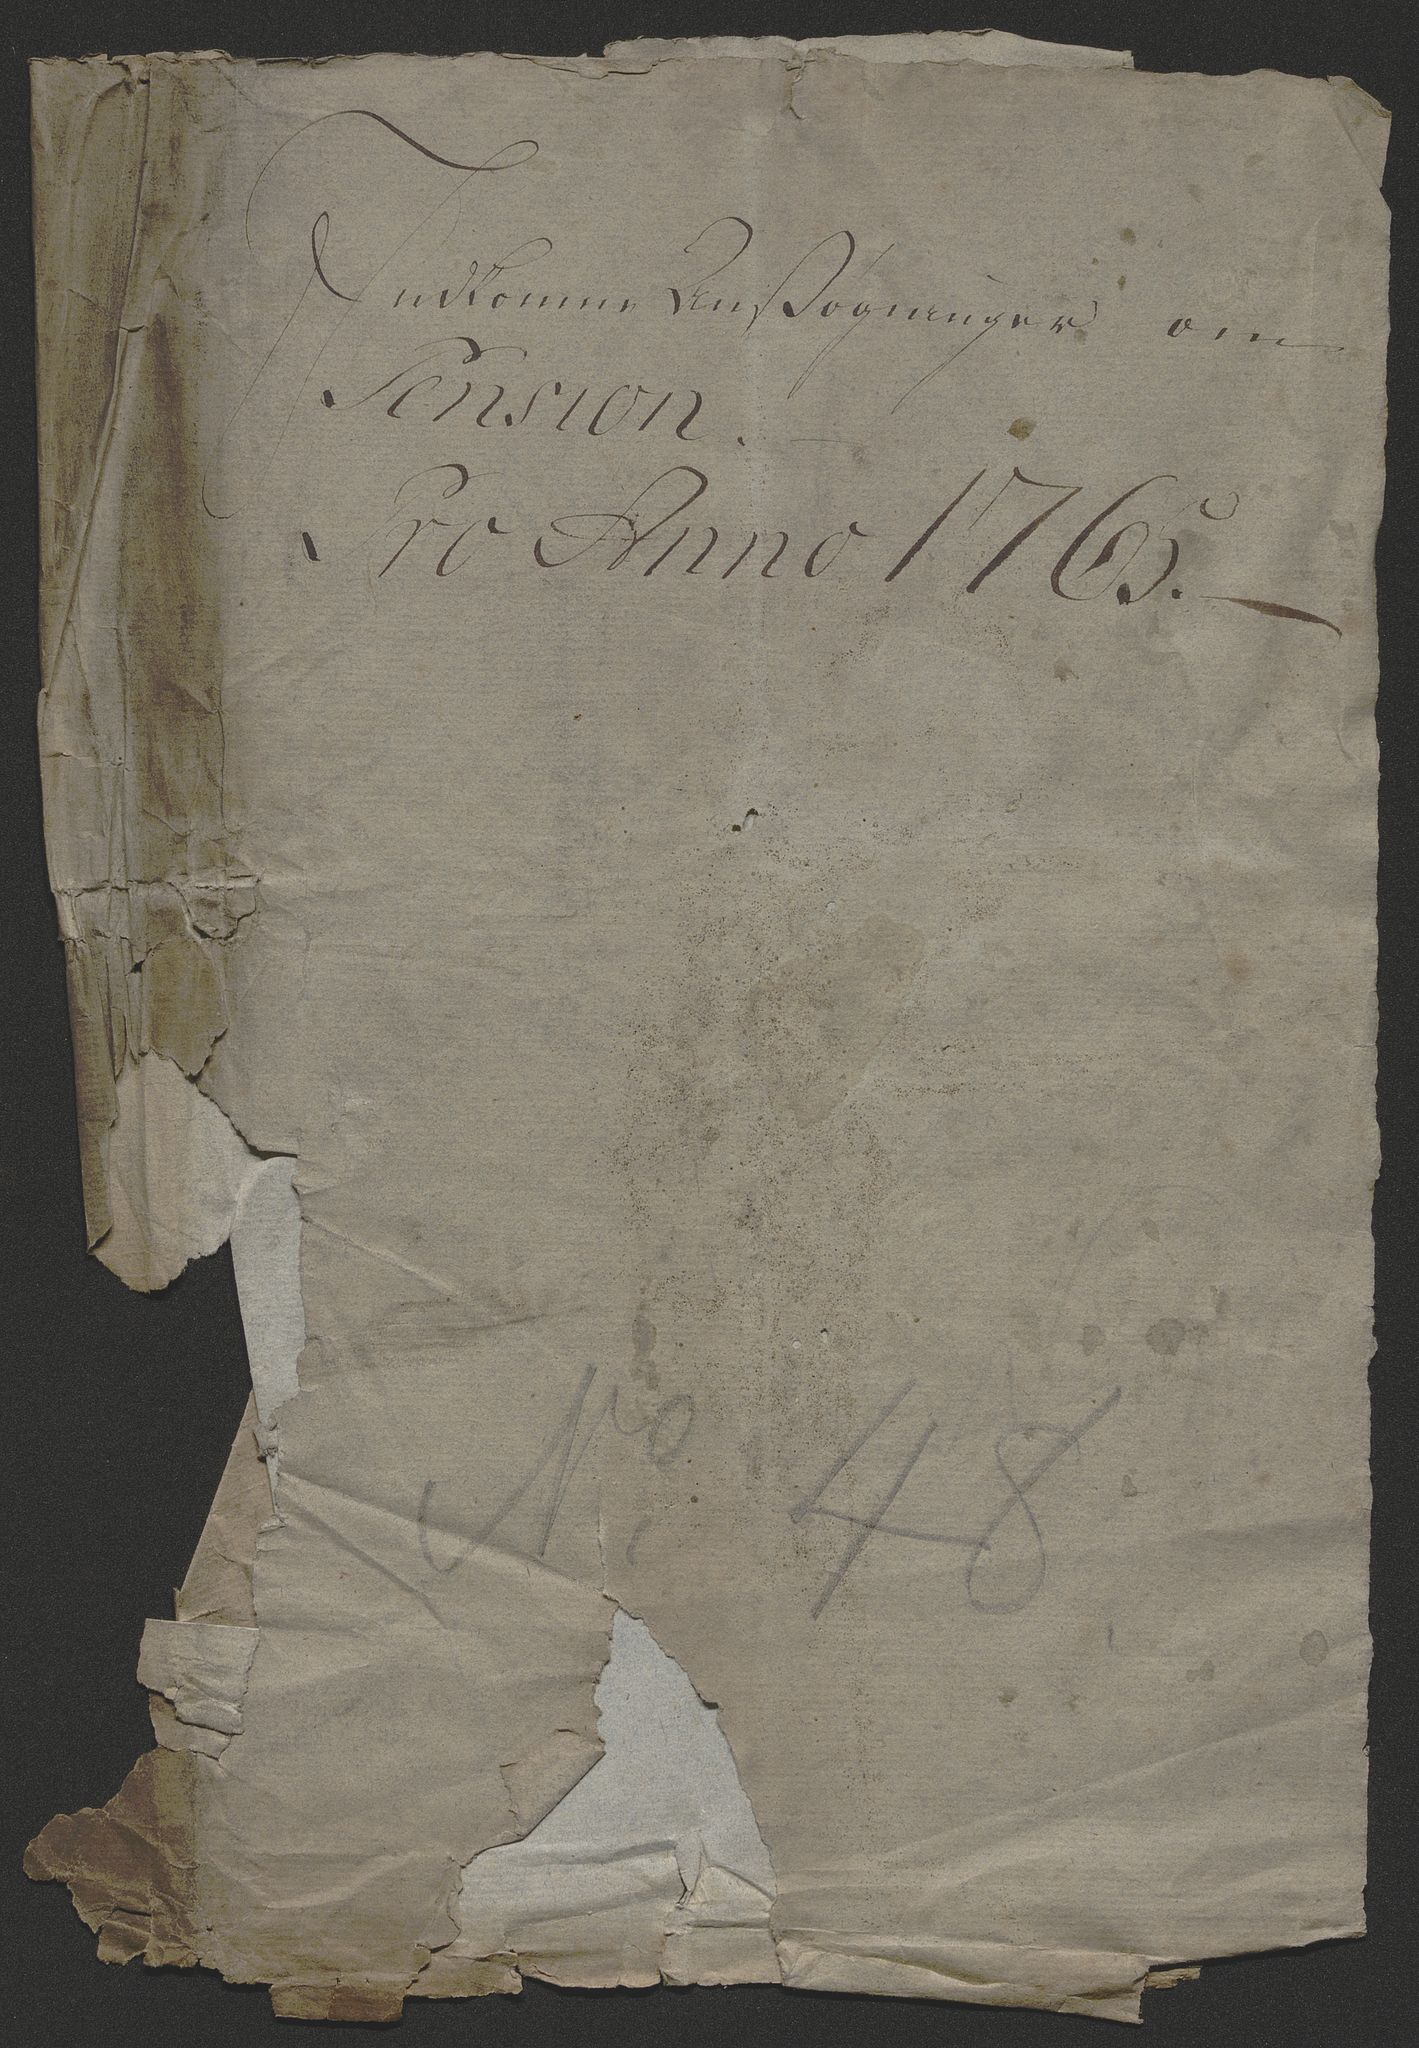 Indkomne Ansøgninger om
Pension.
Pro Anno 1765.
No 48